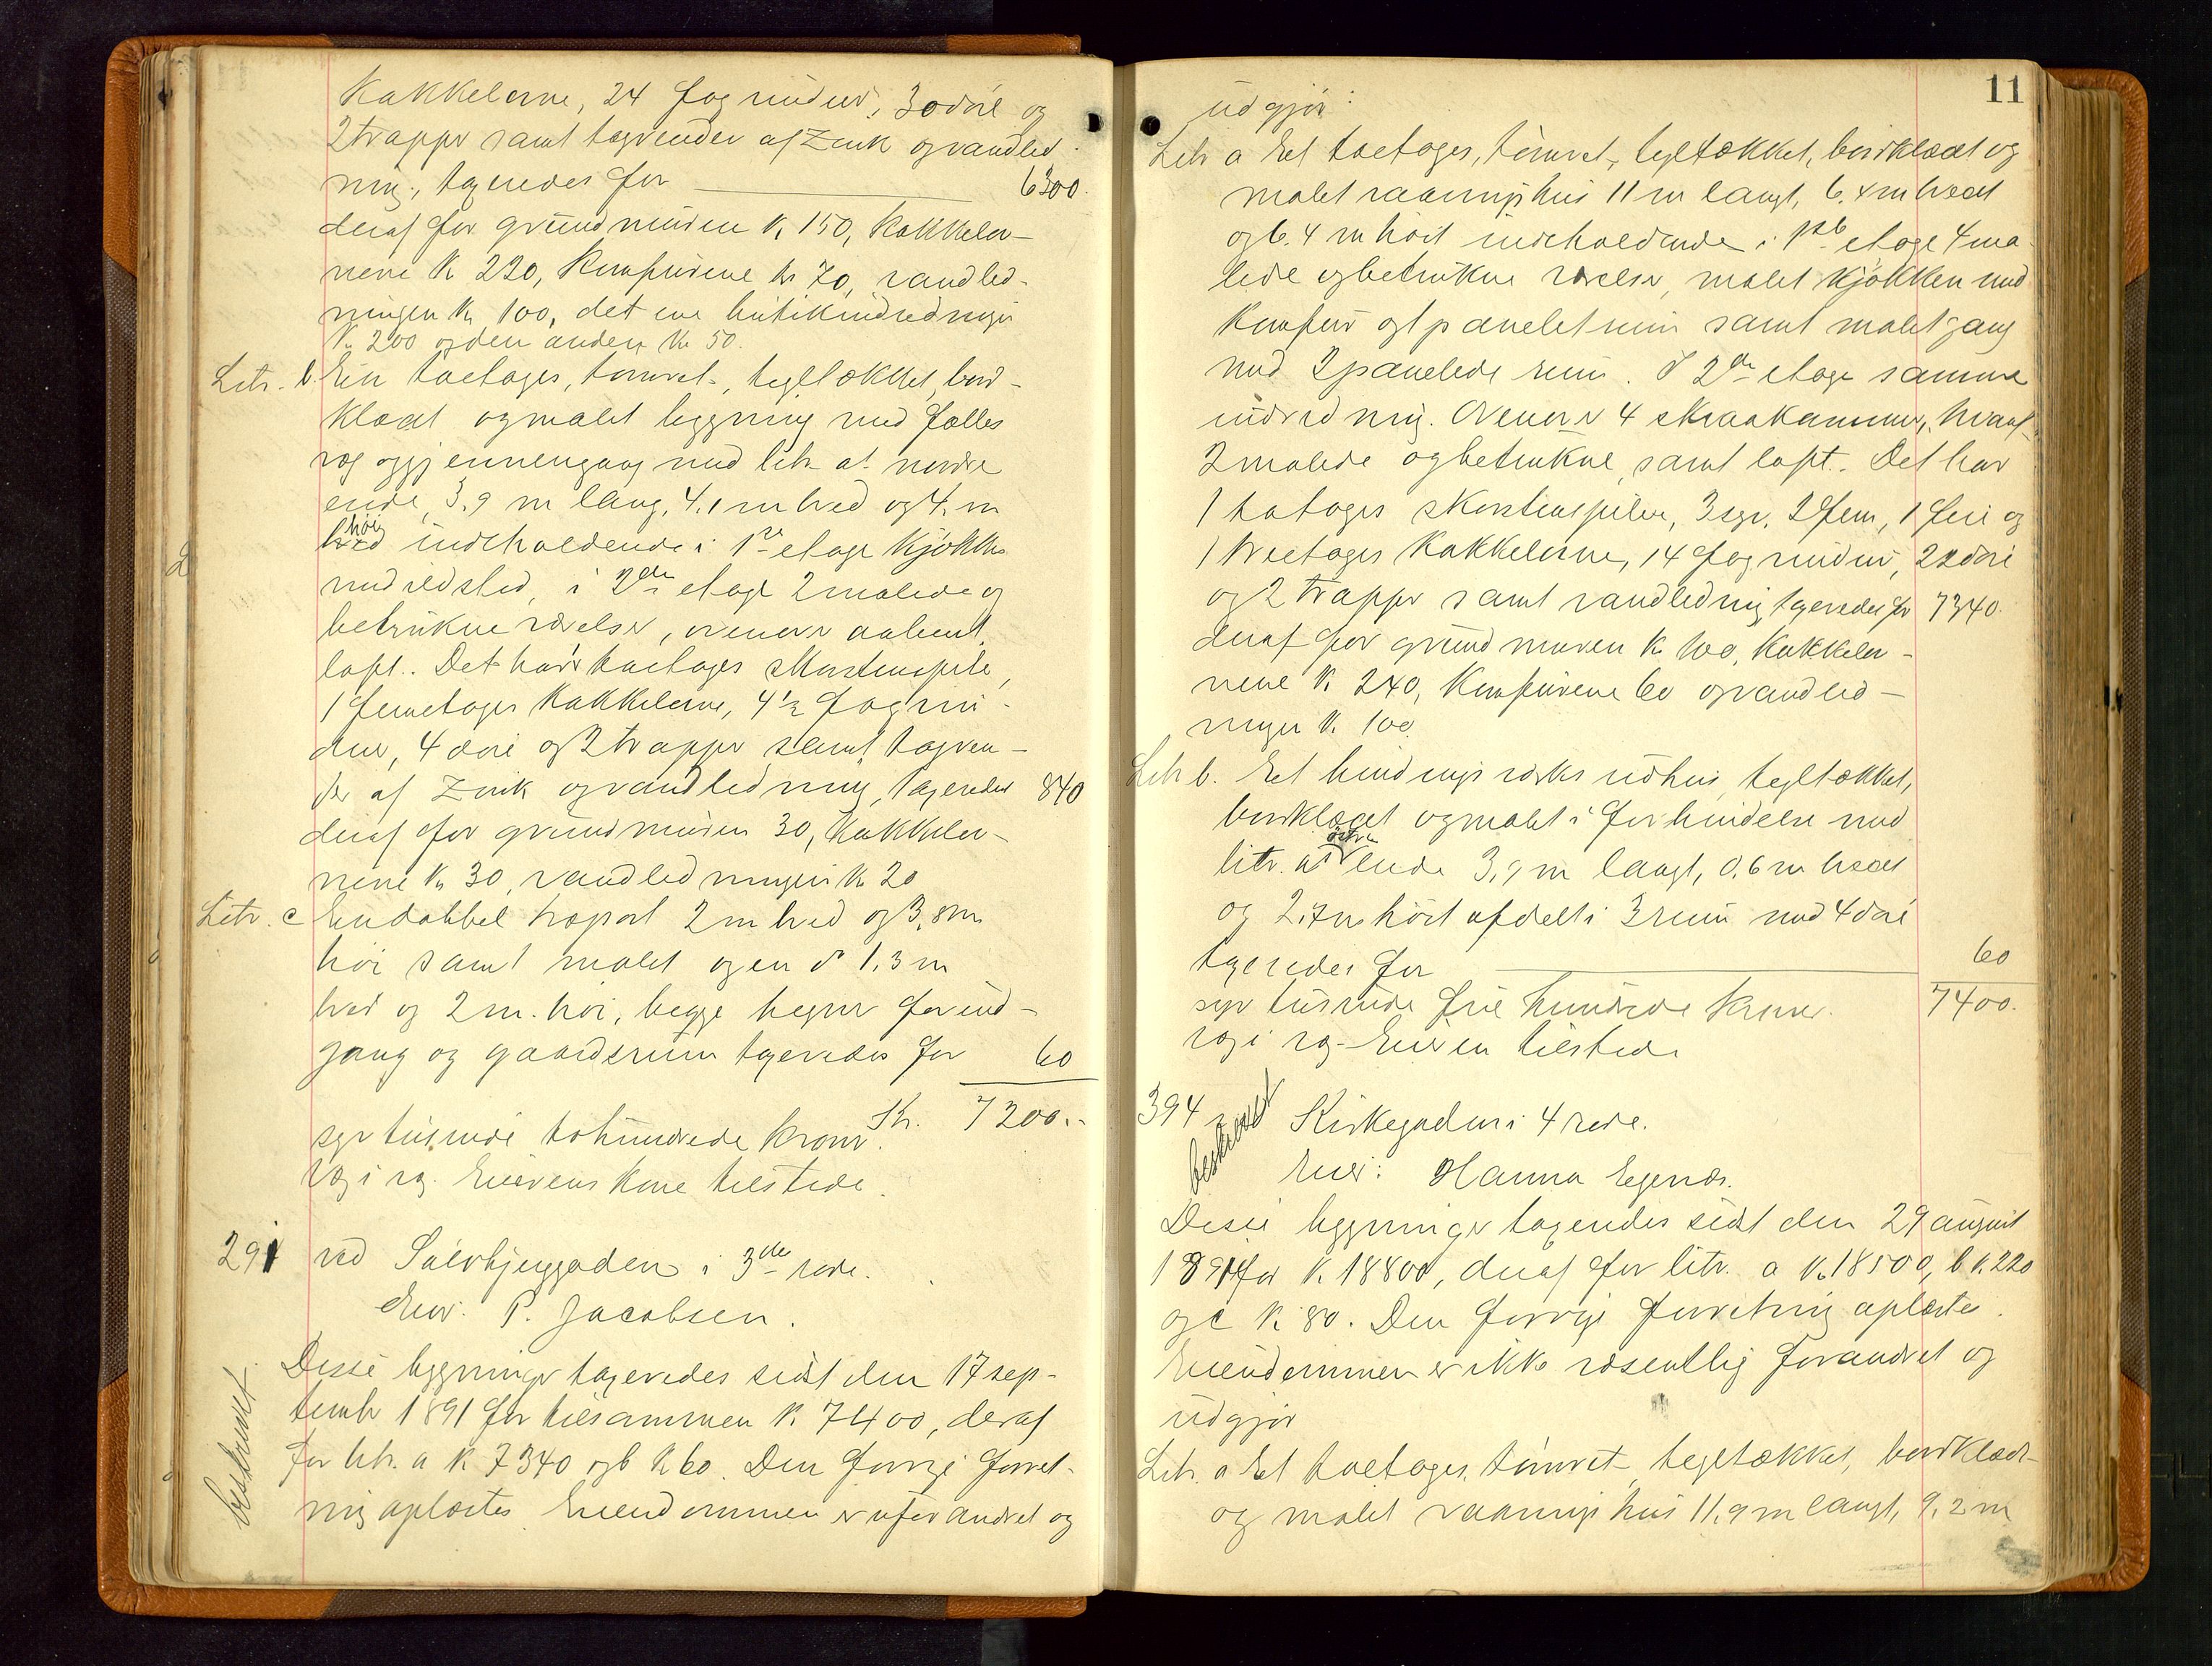 Kakkelovne, 24 fag vinduer, 30 döre og
2 trapper samt tagrender af Zink og vandled-
ning, taxeredes for 6300.
deraf for grundmuren K. 150, Kakkelov-
nene K 220, Komfurene kr 70, vandled-
ningen Kr 100, det ene butikindredninger
K. 200 og den anden Kr 50.
Litr. b. Een toetages, tömret, tegltækket, bord-
klædt og malet bygning med fælles
væg og gjennemgang med litr a's nordre
ende, 3.9 m lang, 4.1 m bred og 4. m
höi indeholdende i 1ste etage Kjökken
med ildsted, i 2den etage 2 malede og
betrukne værelser, ovenover aabent
loft. Det har 1 toetages skorstenspibe,
1 femetages Kakkelovne, 4½ fag vin-
duer, 4 döre og 2 trapper samt tagren-
der af Zink og vandledning, taxeredes 840
deraf for grundmuren 30, Kakkelov-
nene Kr 30, vandledningen Kr 20
Litr. c En dobbel træport 2 m bred og 3,8 m
höi samt malet og en do 1.3 m
bred og 2 m. höi, begge hegner for ind-
gang og gaardsrum taxeredes for 60
Kr. 7200.-
syv tusinde tohundrede kroner.
Væg i væg. Eierens Kone tilstede.
291 ved Sölvbjerggaden i 3de rode.
Eier: P. Jacobsen.
beskrevet
Disse bygninger taxeredes sidst den 17 sep-
tember 1891 for tilsammen K. 7400, deraf
for litr. a K 7340 og b K 60. Den forrige forret-
ning oplæstes. Eiendommen er uforandret og
11
udgjör:
Litr a Et toetages, tömret, tegltækket, bordklædt og
malet vaaningshus 11 m langt, 6.4 m bredt
og 6.4 m höit indeholdende i 1ste etage 4 ma-
lede og betrukne værelser, malet Kjökken med
Komfur og 1 panelet rum samt malet gang
med 2 panelede rum. I 2den etage samme
indredning. Ovenover 4 skraakammer, hvoraf
2 malede og betrukne, samt loft. Det har
1 totages skorstenspibe, 3 syv, 2 fem, 1 fire og
1 treetages Kakkelovne, 14 fag vinduer, 22 döre
og 2 trapper samt vandledning, taxeredes for 7340.
deraf for grundmuren K. 100, Kakkelov-
nene K. 240, Komfurene 60 og vandled-
ningen K. 100.
Litr b. Et bindingsværks udhus, tegltækket,
bordklædt og malet i forbindelse med
litr. a's östre ende 3,9 m langt, 0,6 m bredt
og 2.7 m höit afdelt i 3 rum med 4 döre
taxeredes for 60
7400.
syv tusinde fire hundrede kroner.
væg i væg. Eieren tilstede
394 Kirkegaden i 4 rode.
beskrevet
Eier: Hanna Egenæs.
Disse bygninger taxeredes sidst den 29 august
1891 for K. 18800, deraf for litr. a K. 18500, b K. 220
og c K. 80. Den forrige forretning oplæstes.
Eiendommen er ikke væsentlig forandret og
udgjör
Litr. a Et toetages, tömret, tegltækket, bordklædt
og malet vaaningshus 11,9 m langt, 9,2 m